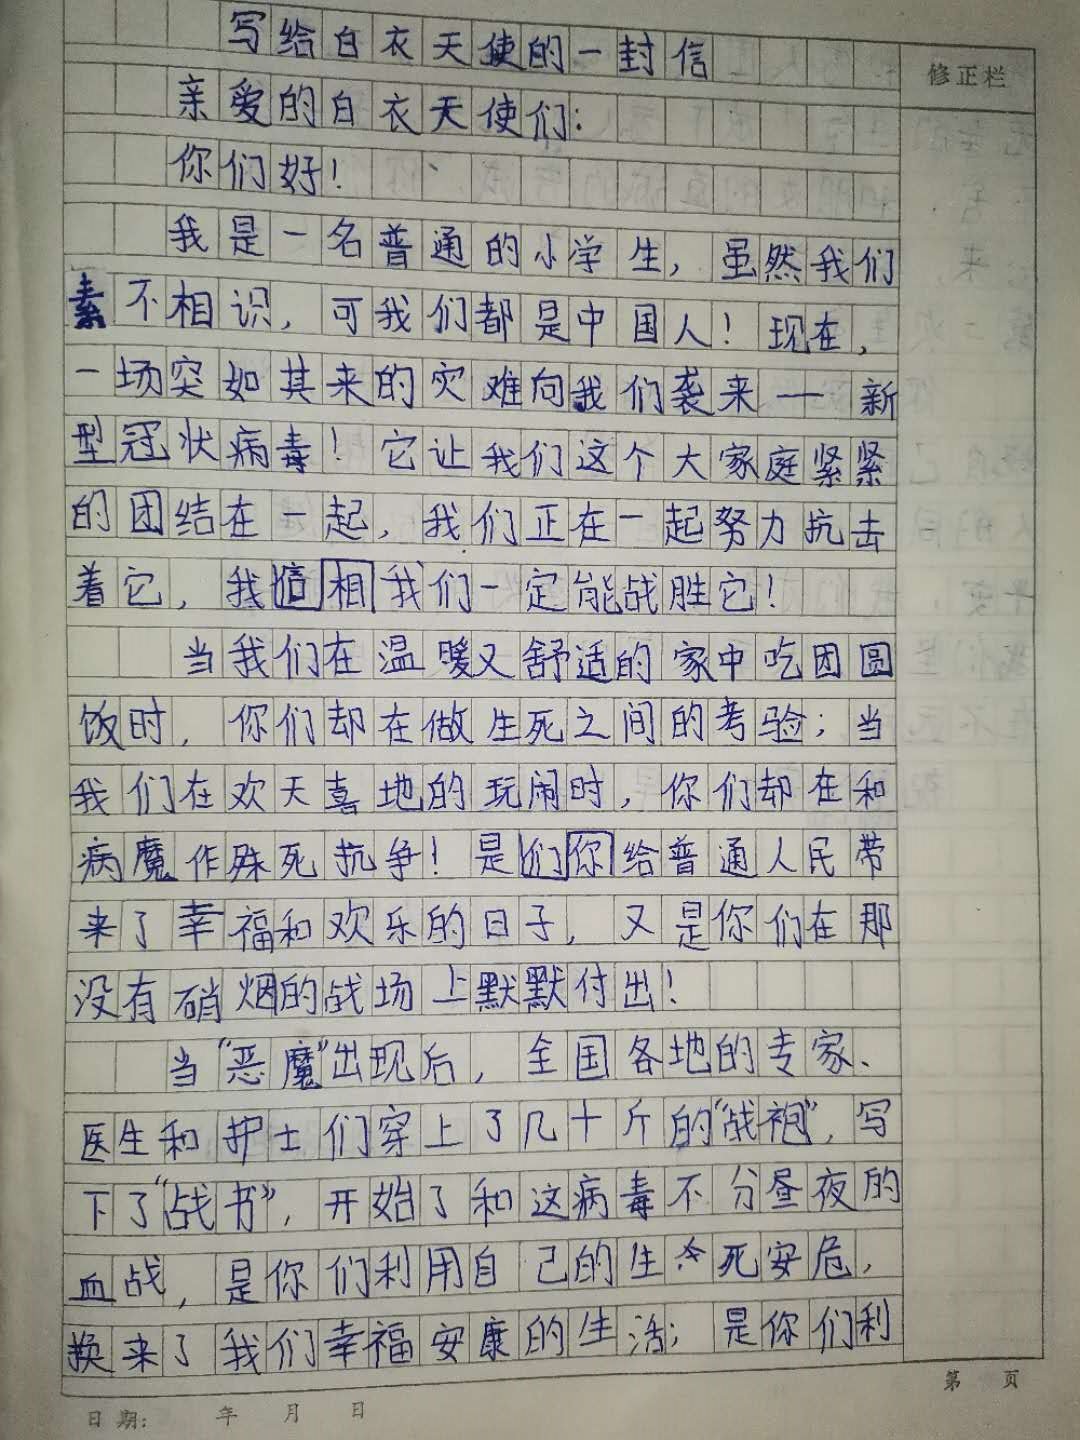 写给白衣天使的一封信
修正栏
亲爱的白衣天使们:
你们好!
我是一名普通的小学生,虽然我们
素不相识,可我们都是中国人!现在,
一场突如其来的灾难向我们袭来一新
型冠状病毒!它让我们这个大家庭紧紧
的团结在一起,我们正在一起努力抗击
着它,我信相我们一定能战胜它!
当我们在温暖又舒适的家中吃团圆
饭时,你们却在做生死之间的考验;当
我们在欢天喜地的玩闹时,你们却在和
病魔作殊死抗争!是们你给普通人民带
来了幸福和欢乐的日子,又是你们在那
没有硝烟的战场上默默付出!
当“恶魔”出现后,全国各地的专家、
医生和护士们穿上了几十斤的“战袍”,写
下了“战书”,开始了和这病毒不分昼夜的
血战,是你们利用自己的生死安危,
换来了我们幸福安康的生活;是你们利
第 页
日期: 年 月 日